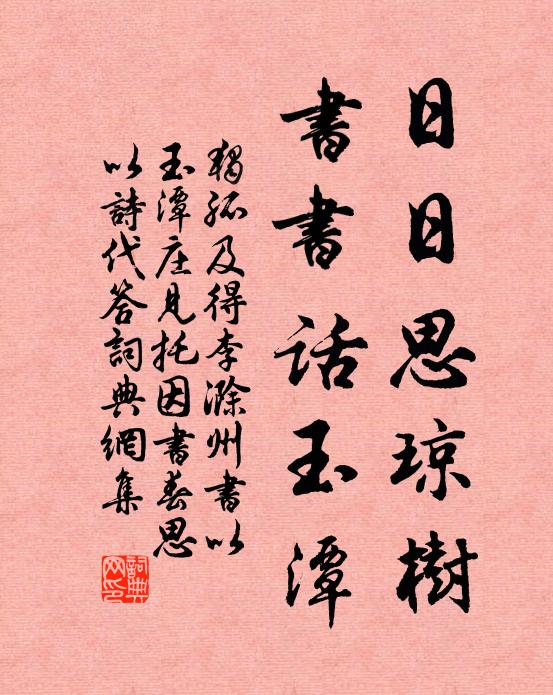 日日思琼樹
書書話玉潭
獨孤及得李滁州書以
玉潭庄見托因書春思
以詩代答詞典網集
詞典網印